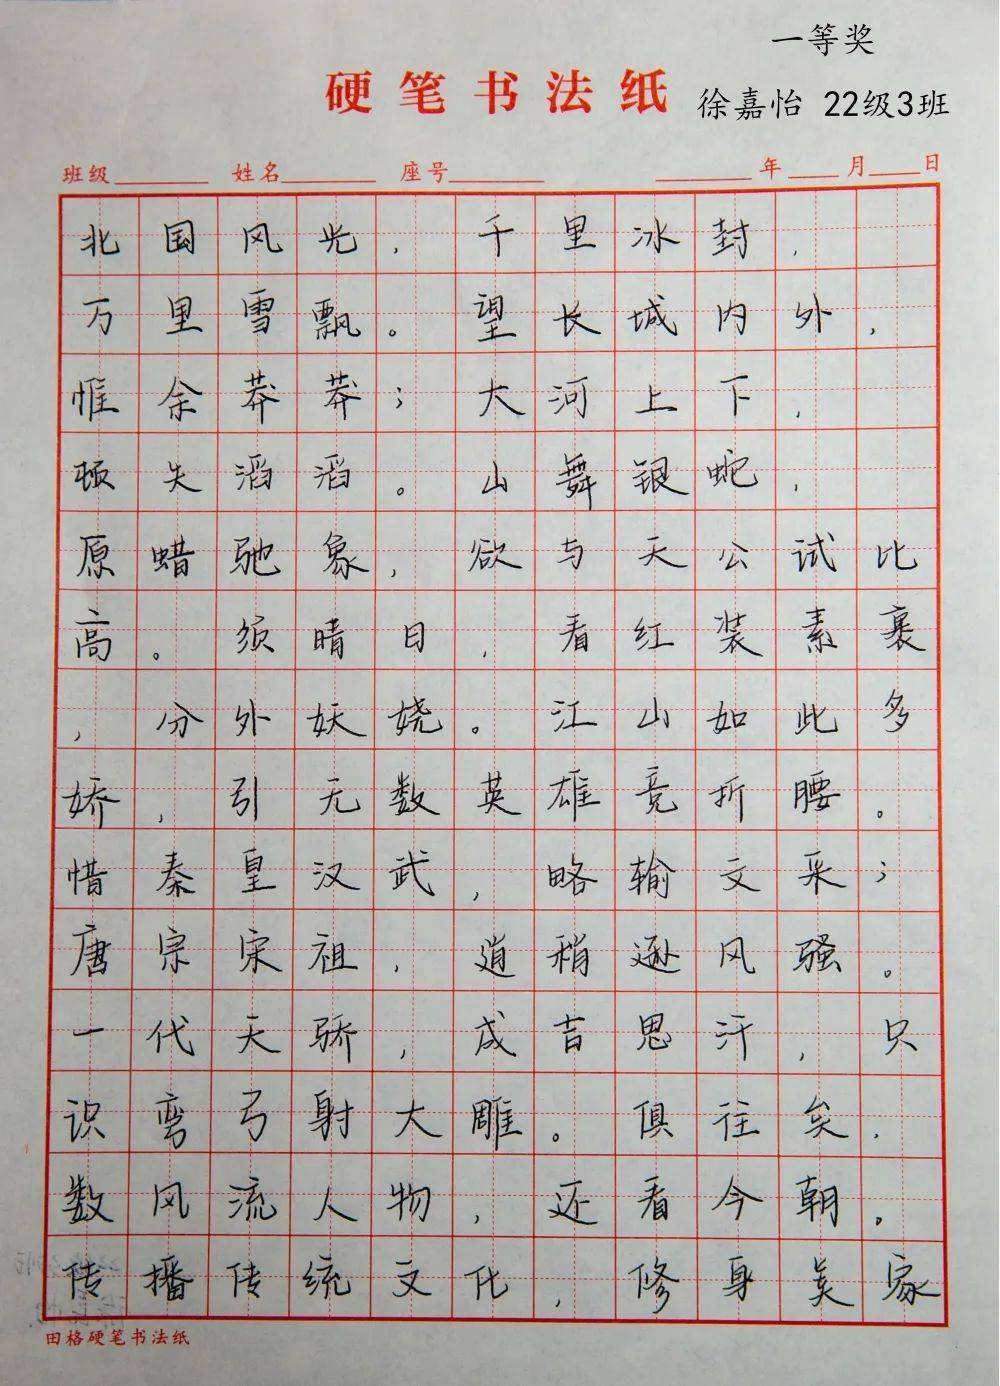 一等奖
硬笔书法纸
徐嘉怡 22级3班
班级 姓名 座号 年 月 日
北国风光，千里冰封，
万里雪飘。望长城内外，
惟余莽莽；大河上下，
顿失滔滔。山舞银蛇，
原蜡驰象，欲与天公试比
高。须晴日，看红装素裹
，分外妖娆。江山如此多
娇，引无数英雄竞折腰。
惜秦皇汉武，略输文采；
唐宗宋祖，逍稍逊风骚。
一代天骄，成吉思汗，只
识弯弓射大雕。俱往矣，
数风流人物，还看今朝。
传播传统文化，修身美家
田格硬笔书法纸